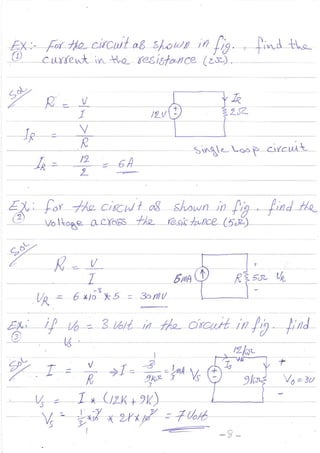 EX:- For the circuit as shown in fig. , find the
① current in the resistance (2Ω).
Sol
R = V / I
I_R = V / R
I_R = 12 / 2 = 6A
12V
I_R
2Ω
Single Loop circuit
EX: for the circuit as shown in fig. find the
② voltage across the resistance (5Ω)
Sol
R = V / I
V_R = 6 * 10^-3 * 5 = 30mV
6mA
R 5Ω V_R
+
-
EX: if Vo = 3 Volt in the circuit in fig. find
③ Vs.
Sol
I = V / R → I = 3 / 9kΩ = 1/3 mA
Vs
12kΩ
Io
9kΩ
+
Vo = 3V
-
Vs = I * (12K + 9K)
Vs = 1/3 * 10^-3 * 21 * 10^3 = 7 Volt
-8-